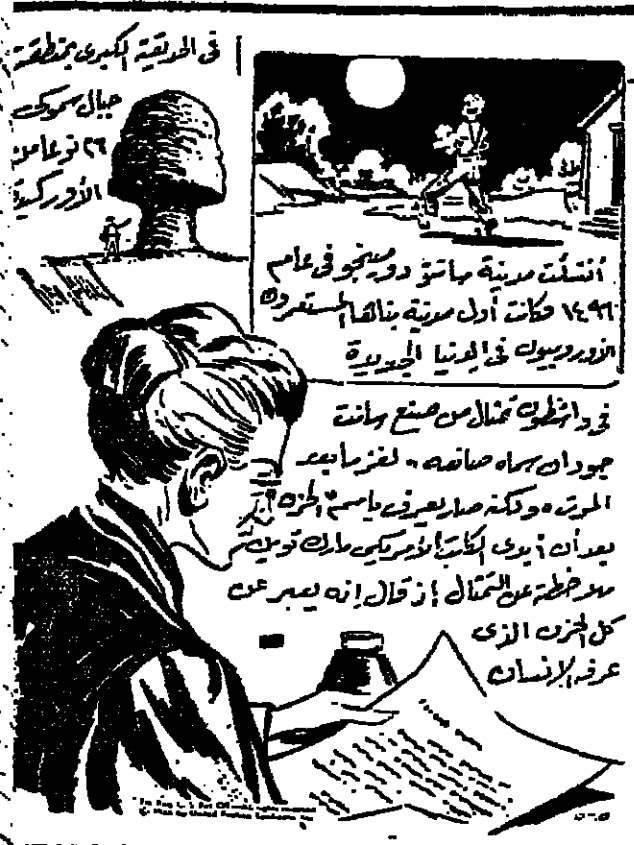 في الحديقة الكبرى بمنطقة
جبال سموكي
٢٦ نوعا من
الأوركيد
أنشئت مدينة سانتو دومينجو في عام
١٤٩٦ فكانت أول مدينة بناها المستعمرون
الأوروبيون في الدنيا الجديدة
في واشنطون تمثال من صنع سانت
جودان سماه صانعه « لغز ما بعد
الموت » ولكنه صار يعرف باسم الحزن
بعد أن أبدى الكاتب الأمريكي مارك توين
ملاحظة عن التمثال إذ قال إنه يعبر عن
كل الحزن الذي
عرفه الإنسان
by United Feature Syndicate